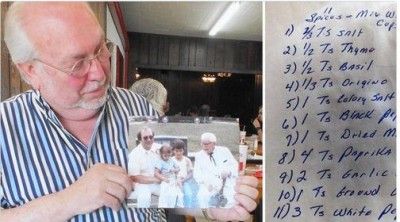 11
Spices - Mix W
1) 2/3 Ts Salt
2) 1/2 Ts Thyme
3) 1/2 Ts Basil
4) 1/3 Ts Origino
5) 1 Ts Celery Salt
6) 1 Ts Black
7) 1 Ts Dried
8) 4 Ts Paprika
9) 2 Ts Garlic
10) 1 Ts Ground
11) 3 Ts White